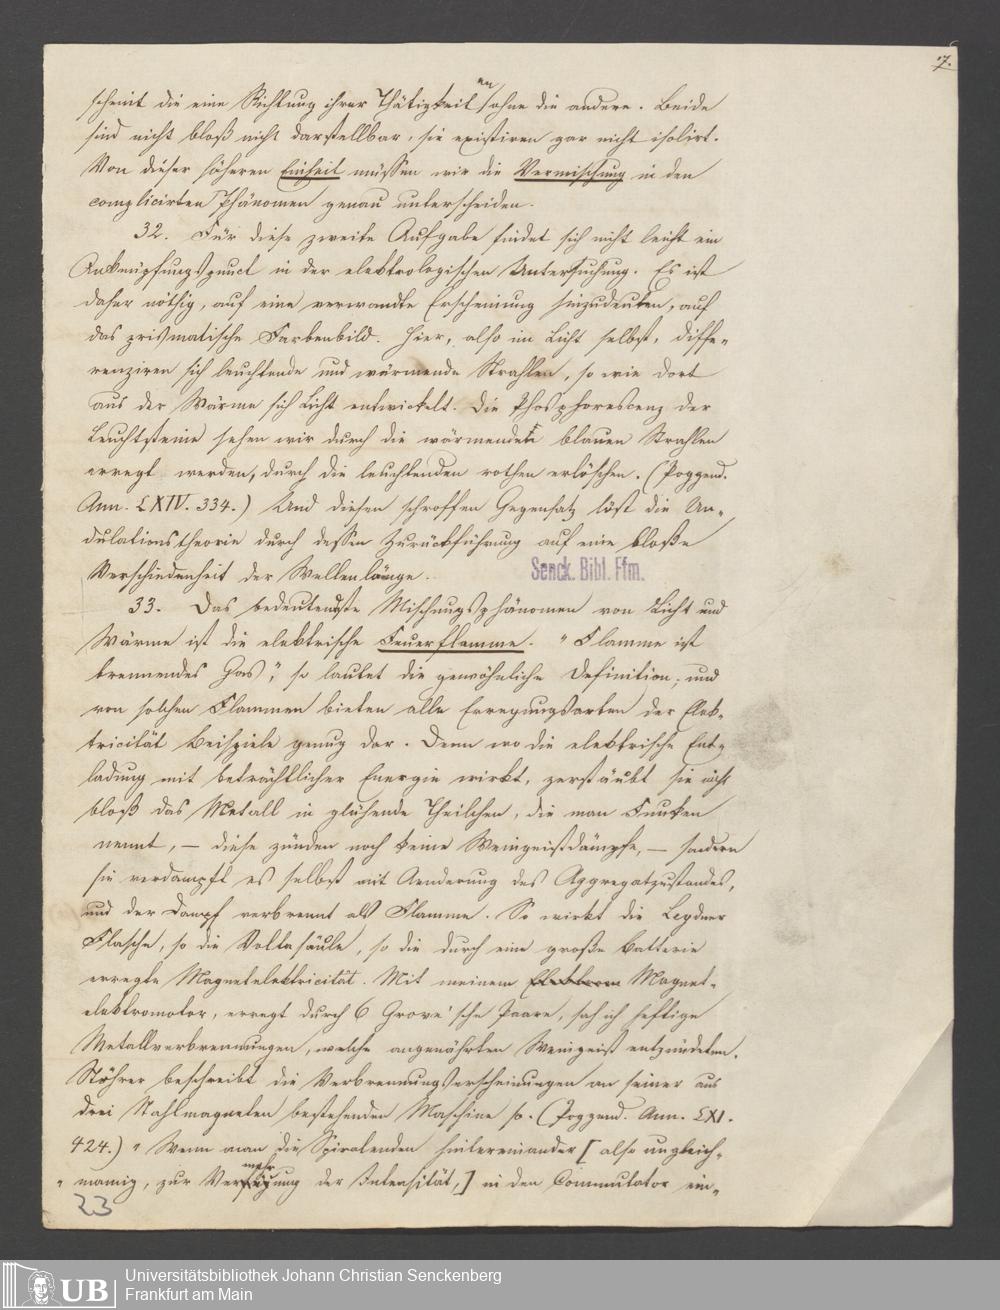 7.
scheint die eine Richtung ihrer Thätigkeiten ohne die andere. Beide
sind nicht bloß nicht darstellbar, sie existiren gar nicht isolirt.
Von dieser höheren Einheit müssen wir die Vermischung in den
complicirten Phänomen genau unterscheiden.
32. Für diese zweite Aufgabe findet sich nicht leicht ein
Anknüpfungspunct in der elektrologischen Untersuchung. Es ist
daher nöthig, auf eine verwandte Erscheinung hinzudeuten, auf
das prismatische Farbenbild. Hier, also im Licht selbst, diffe-
renziren sich leuchtende und wärmende Strahlen, so wie dort
aus der Wärme sich Licht entwickelt. Die Phosphorescenz der
Leuchtsteine sehen wir durch die wärmenden blauen Strahlen
erregt werden, durch die leuchtenden rothen erlöschen. (Poggend.
Ann. LXIV. 334.) Und diesen schroffen Gegensatz löst die Un-
dulationstheorie durch dessen Zurückführung auf eine bloße
Verschiedenheit der Wellenlänge.
Senck. Bibl. Ffm.
33. Das bedeutendste Mischungsphänomen von Licht und
Wärme ist die elektrische Feuerflamme. "Flamme ist
brennendes Gas", so lautet die gewöhnliche Definition; und
von solchen Flammen bieten alle Erregungsarten der Elek-
tricität Beispiele genug dar. Denn wo die elektrische Ent-
ladung mit beträchtlicher Energie wirkt, zerstäubt sie nicht
bloß das Metall in glühende Theilchen, die man Funken
nennt, – diese zünden noch keine Weingeistdämpfe, – sondern
sie verdampft es selbst mit Aenderung des Aggregatzustandes,
und der Dampf verbrennt als Flamme. So wirkt die Leydner
Flasche, so die Voltasäule, so die durch eine große Batterie
erregte Magnetelektricität. Mit meinem Magnet-
elektromotor, erregt durch 6 Grove'sche Paare, sah ich heftige
Metallverbrennungen, welche angenährten Weingeist entzündeten.
Stöhrer beschreibt die Verbrennungserscheinungen an seiner aus
drei Stahlmagneten bestehenden Maschine so. (Poggend. Ann. LXI.
424.) "Wenn man die Spiralenden hintereinander [also ungleich-
"namig, zur Vermehrung der Intensität,] in den Commutator ein-
23
UB
Universitätsbibliothek Johann Christian Senckenberg
Frankfurt am Main